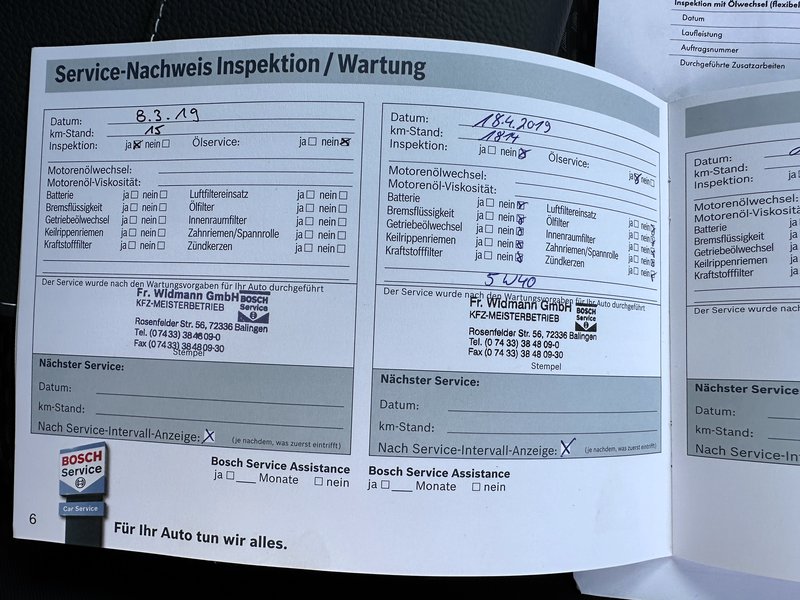 Inspektion mit Ölwechsel (flexibel
Datum
Laufleistung
Auftragsnummer
Durchgeführte Zusatzarbeiten
Service-Nachweis Inspektion / Wartung
Datum: 8.3.19
km-Stand: 15
Inspektion: ja nein Ölservice: ja nein
Motorenölwechsel:
Motorenöl-Viskosität:
Batterie ja nein Luftfiltereinsatz ja nein
Bremsflüssigkeit ja nein Ölfilter ja nein
Getriebeölwechsel ja nein Innenraumfilter ja nein
Keilrippenriemen ja nein Zahnriemen/Spannrolle ja nein
Kraftstofffilter ja nein Zündkerzen ja nein
Der Service wurde nach den Wartungsvorgaben für Ihr Auto durchgeführt
Fr. Widmann GmbH BOSCH
KFZ-MEISTERBETRIEB Service
Rosenfelder Str. 56, 72336 Balingen
Tel. (0 74 33) 38 48 09-0
Fax (0 74 33) 38 48 09-30
Stempel
Nächster Service:
Datum:
km-Stand:
Nach Service-Intervall-Anzeige: X (je nachdem, was zuerst eintrifft)
Bosch Service Assistance
ja Monate nein
Datum: 18.4.2019
km-Stand: 1814
Inspektion: ja nein Ölservice: ja nein
Motorenölwechsel:
Motorenöl-Viskosität:
Batterie ja nein Luftfiltereinsatz ja nein
Bremsflüssigkeit ja nein Ölfilter ja nein
Getriebeölwechsel ja nein Innenraumfilter ja nein
Keilrippenriemen ja nein Zahnriemen/Spannrolle ja nein
Kraftstofffilter ja nein Zündkerzen ja nein
5W40
Der Service wurde nach den Wartungsvorgaben für Ihr Auto durchgeführt
Fr. Widmann GmbH BOSCH
KFZ-MEISTERBETRIEB Service
Rosenfelder Str. 56, 72336 Balingen
Tel. (0 74 33) 38 48 09-0
Fax (0 74 33) 38 48 09-30
Stempel
Nächster Service:
Datum:
km-Stand:
Nach Service-Intervall-Anzeige: X (je nachdem, was zuerst eintrifft)
Bosch Service Assistance
ja Monate nein
Datum:
km-Stand:
Inspektion: ja
Motorenölwechsel:
Motorenöl-Viskosität
Batterie ja
Bremsflüssigkeit ja
Getriebeölwechsel ja
Keilrippenriemen ja
Kraftstofffilter ja
Der Service wurde nach
Nächster Service
Datum:
km-Stand:
Nach Service-Int
BOSCH
Service
Car Service
6
Für Ihr Auto tun wir alles.